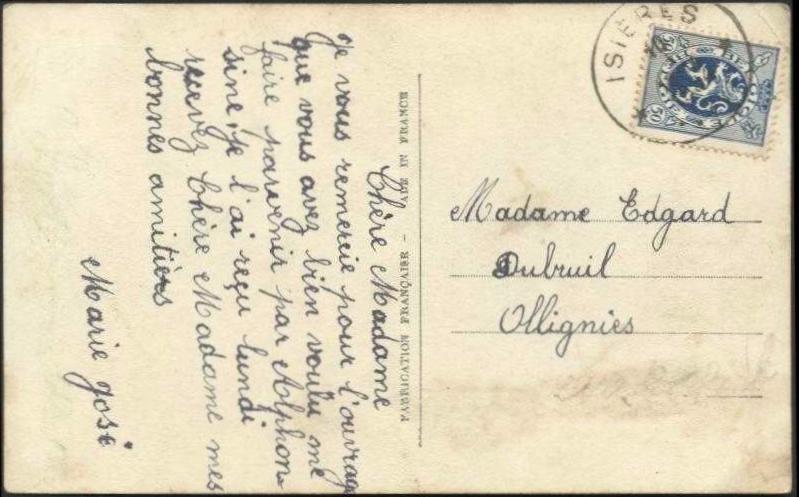 Chère Madame
Je vous remercie pour l'ouvrage
que vous avez bien voulu me
faire parvenir par Alphon-
sine, je l'ai reçu lundi
recevez Chère Madame mes
bonnes amitiés
Marie José
FABRICATION FRANÇAISE - MADE IN FRANCE
ISIÈRES
BELGIQUE BELGIË
50
Madame Edgard
Dubruil
Ollignies